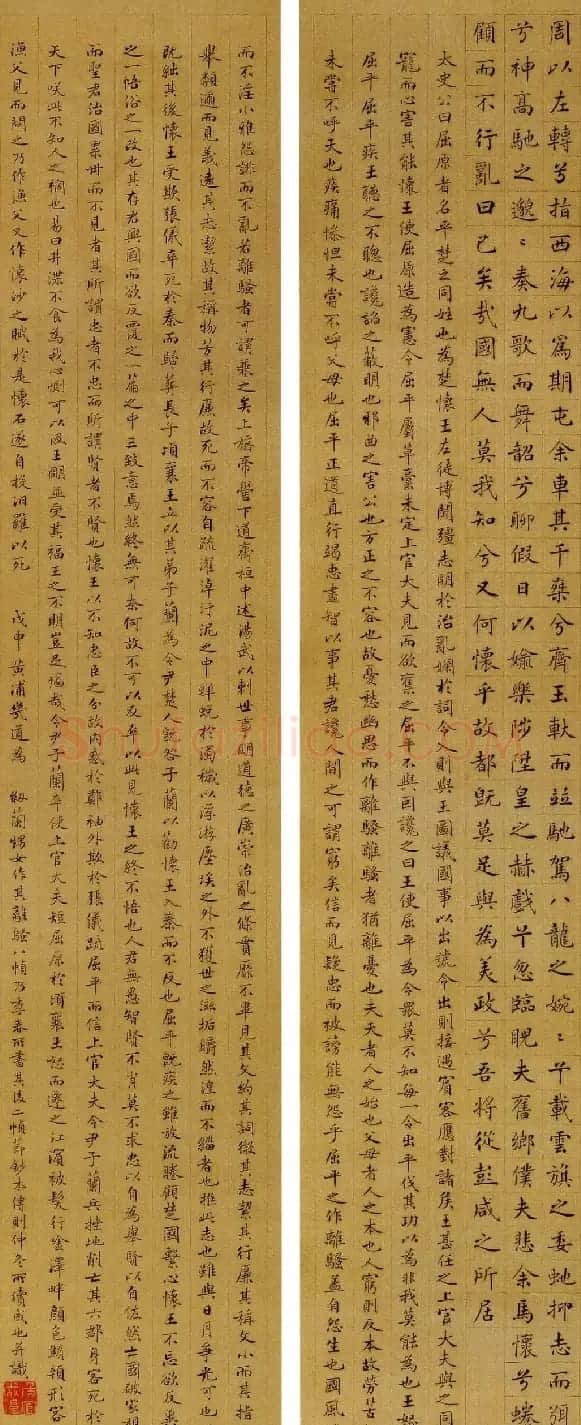 周以左轉兮指西海以爲期屯余車其千椉兮齊玉軑而竝馳駕八龍之婉〻兮載雲旗之委蛇抑志而弭
兮神高馳之邈〻奏九歌而舞韶兮聊假日以媮樂陟陞皇之赫戲兮忽臨睨夫舊鄉僕夫悲余馬懷兮蜷
顧而不行亂曰已矣哉國無人莫我知兮又何懷乎故都旣莫足與爲美政兮吾將從彭咸之所居
太史公曰屈原者名平楚之同姓也爲楚懷王左徒博聞彊志明於治亂嫺於詞令入則與王圖議國事以出號令出則接遇賓客應對諸矦王甚任之上官大夫與之同
寵而心害其能懷王使屈原造爲憲令屈平屬草稾未定上官大夫見而欲奪之屈平不與因讒之曰王使屈平爲令眾莫不知每一令出平伐其功以爲非我莫能爲也王怒
屈平屈平疾王聽之不聰也讒諂之蔽明也邪曲之害公也方正之不容也故憂愁幽思而作離騷離騷者猶離憂也夫天者人之始也父母者人之本也人窮則反本故勞苦
未嘗不呼天也疾痛慘怛未嘗不呼父母也屈平正道直行竭忠盡智以事其君讒間之可謂窮矣信而見疑忠而被謗能無怨乎屈平之作離騷蓋自怨生也國風
而不淫小雅怨誹而不亂若離騷者可謂兼之矣上稱帝嚳下道齊桓中述湯武以刺世事明道德之廣崇治亂之條貫靡不畢見其文約其詞微其志絜其行廉其稱文小而其指
舉類邇而見義遠其志絜故其稱物芳其行廉故死而不容自疏濯淖汙泥之中蟬蛻於濁穢以浮游塵埃之外不獲世之滋垢皭然泥而不緇者也推此志也雖與日月爭光可也
旣絀其後懷王受欺張儀卒死於秦而歸葬長子頃襄王立以其弟子蘭爲令尹楚人旣咎子蘭以勸懷王入秦而不反也屈平旣疾之雖放流睠顧楚國繫心懷王不忘欲反
之一悟俗之一改也其存君興國而欲反覆之一篇之中三致意焉然終無可奈何故不可以反卒以此見懷王之終不悟也人君無愚智賢不肖莫不求忠以自爲舉賢以自佐然亡國破家相
而聖君治國累世而不見者其所謂忠者不忠而所謂賢者不賢也懷王以不知忠臣之分故內惑於鄭袖外欺於張儀疏屈平而信上官大夫令尹子蘭兵挫地削亡其六郡身客死於
天下笑此不知人之禍也易曰井渫不食爲我心惻可以汲王明並受其福王之不明豈足福哉令尹子蘭卒使上官大夫短屈原於頃襄王怒而遷之江濱被髮行唫澤畔顏色顦顇形容
漁父見而問之乃作漁父又作懷沙之賦於是懷石遂自投汨羅以死 戊申黃浦幾道爲 紉蘭甥女作其離騷八幀乃季春所書其後二幀節鈔本傳則仲冬所續成也并識